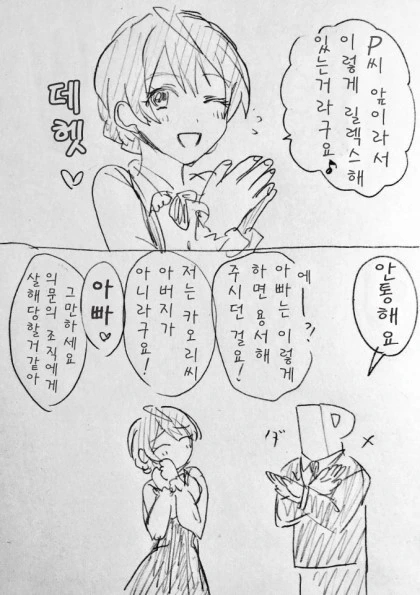 P씨 앞이라서
이렇게 릴렉스해
있는거라구요♪
데헷♡
안통해요
에ー?!
아빠는 이렇게
하면 용서해
주시던 걸요!
저는 카오리씨
아버지가
아니라구요!
아빠♡
그만하세요
의문의 조직에게
살해당할거같아
P